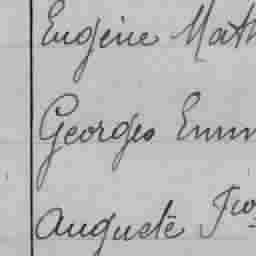 Eugène Math
Georges Emm
Auguste